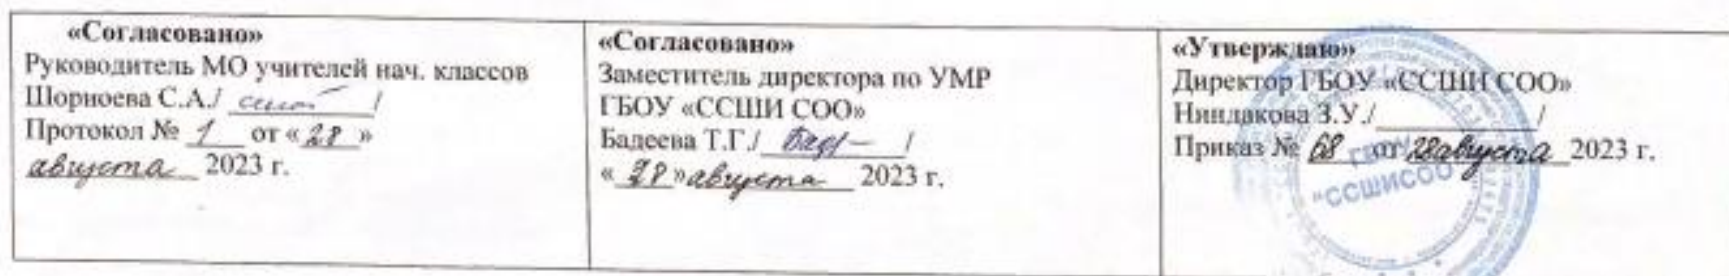 «Согласовано»
Руководитель МО учителей нач. классов
Шорноева С.А./ /
Протокол № 1 от «28»
августа 2023 г.
«Согласовано»
Заместитель директора по УМР
ГБОУ «ССШИ СОО»
Бадеева Т.Г./ /
«28» августа 2023 г.
«Утверждаю»
Директор ГБОУ «ССШИ СОО»
Ниндакова З.У./ /
Приказ № 68 от 28 августа 2023 г.
ГБОУ
"ССШИСОО"